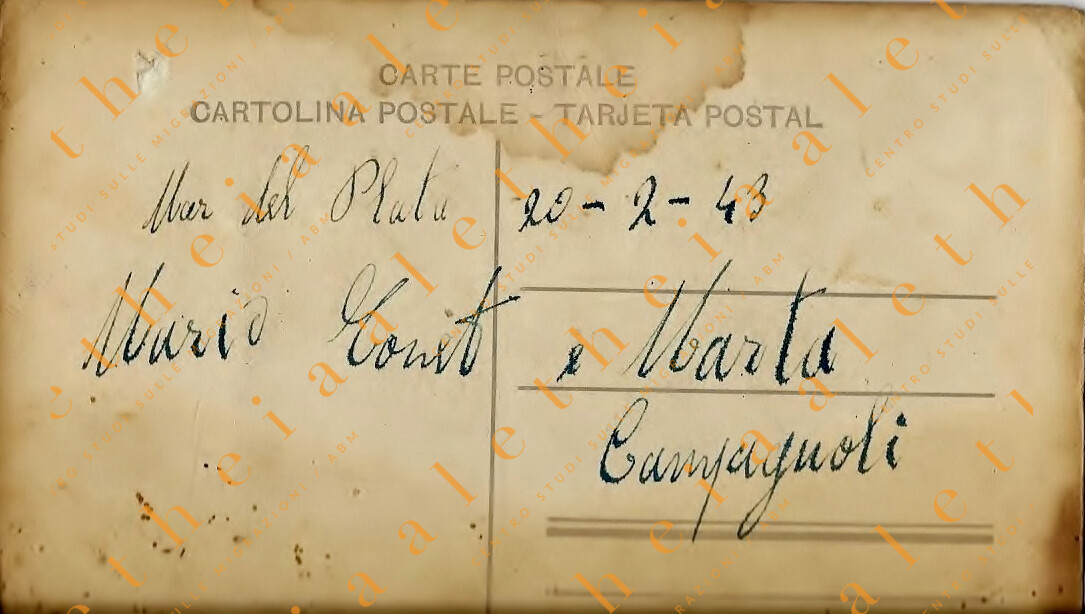 CARTE POSTALE
CARTOLINA POSTALE - TARJETA POSTAL
Mar del Plata 20-2-43
Mario Conet e Marta
Campagnoli
aletheia
CENTRO STUDI SULLE MIGRAZIONI / ABM